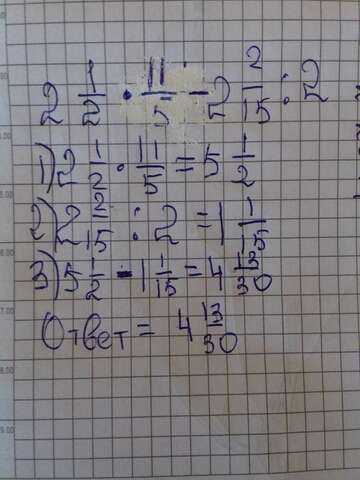 2 1/2 · 11/5 - 2 2/15 : 2
1) 2 1/2 · 11/5 = 5 1/2
2) 2 2/15 : 2 = 1 1/15
3) 5 1/2 - 1 1/15 = 4 13/30
Ответ = 4 13/30